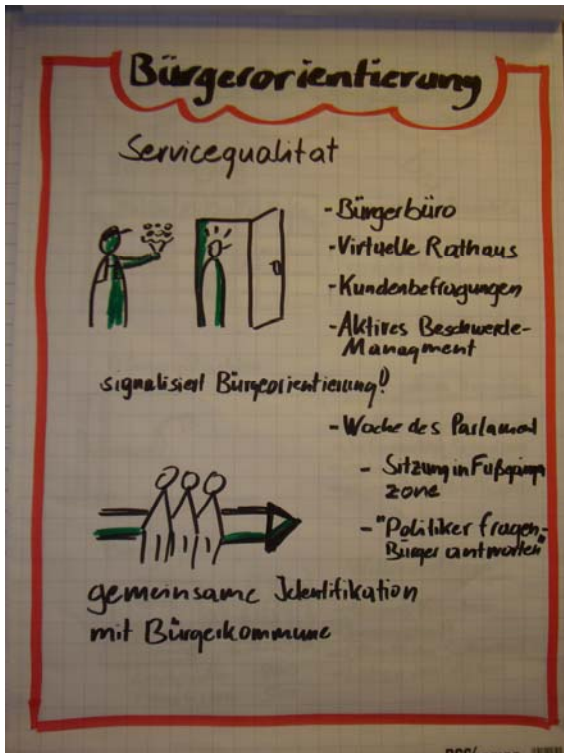 Bürgerorientierung
Servicequalität
- Bürgerbüro
- Virtuelle Rathaus
- Kundenbefragungen
- Aktives Beschwerde-
Managment
signalisiert Bürgeorientierung!
- Woche des Parlament
- Sitzung in Fußgänger
zone
- "Politiker fragen-
Bürger antworten"
gemeinsame Identifikation
mit Bürgerkommune